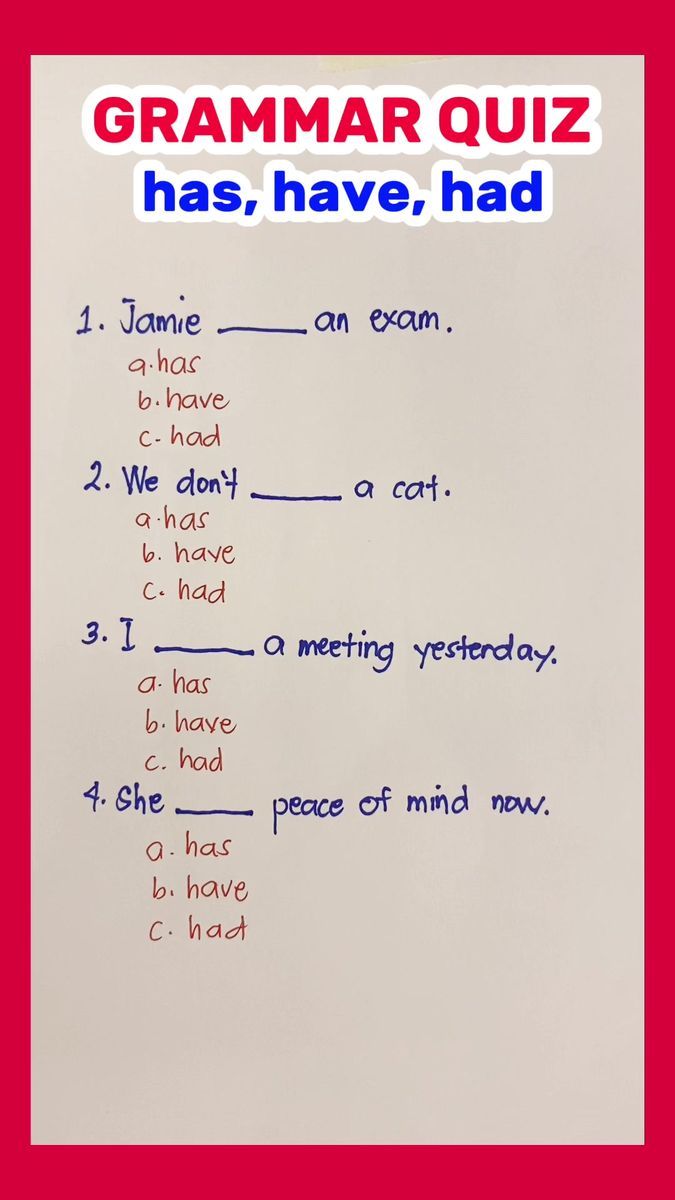 GRAMMAR QUIZ
has, have, had
1. Jamie ____ an exam.
a. has
b. have
c. had
2. We don't ____ a cat.
a. has
b. have
c. had
3. I ____ a meeting yesterday.
a. has
b. have
c. had
4. She ____ peace of mind now.
a. has
b. have
c. had